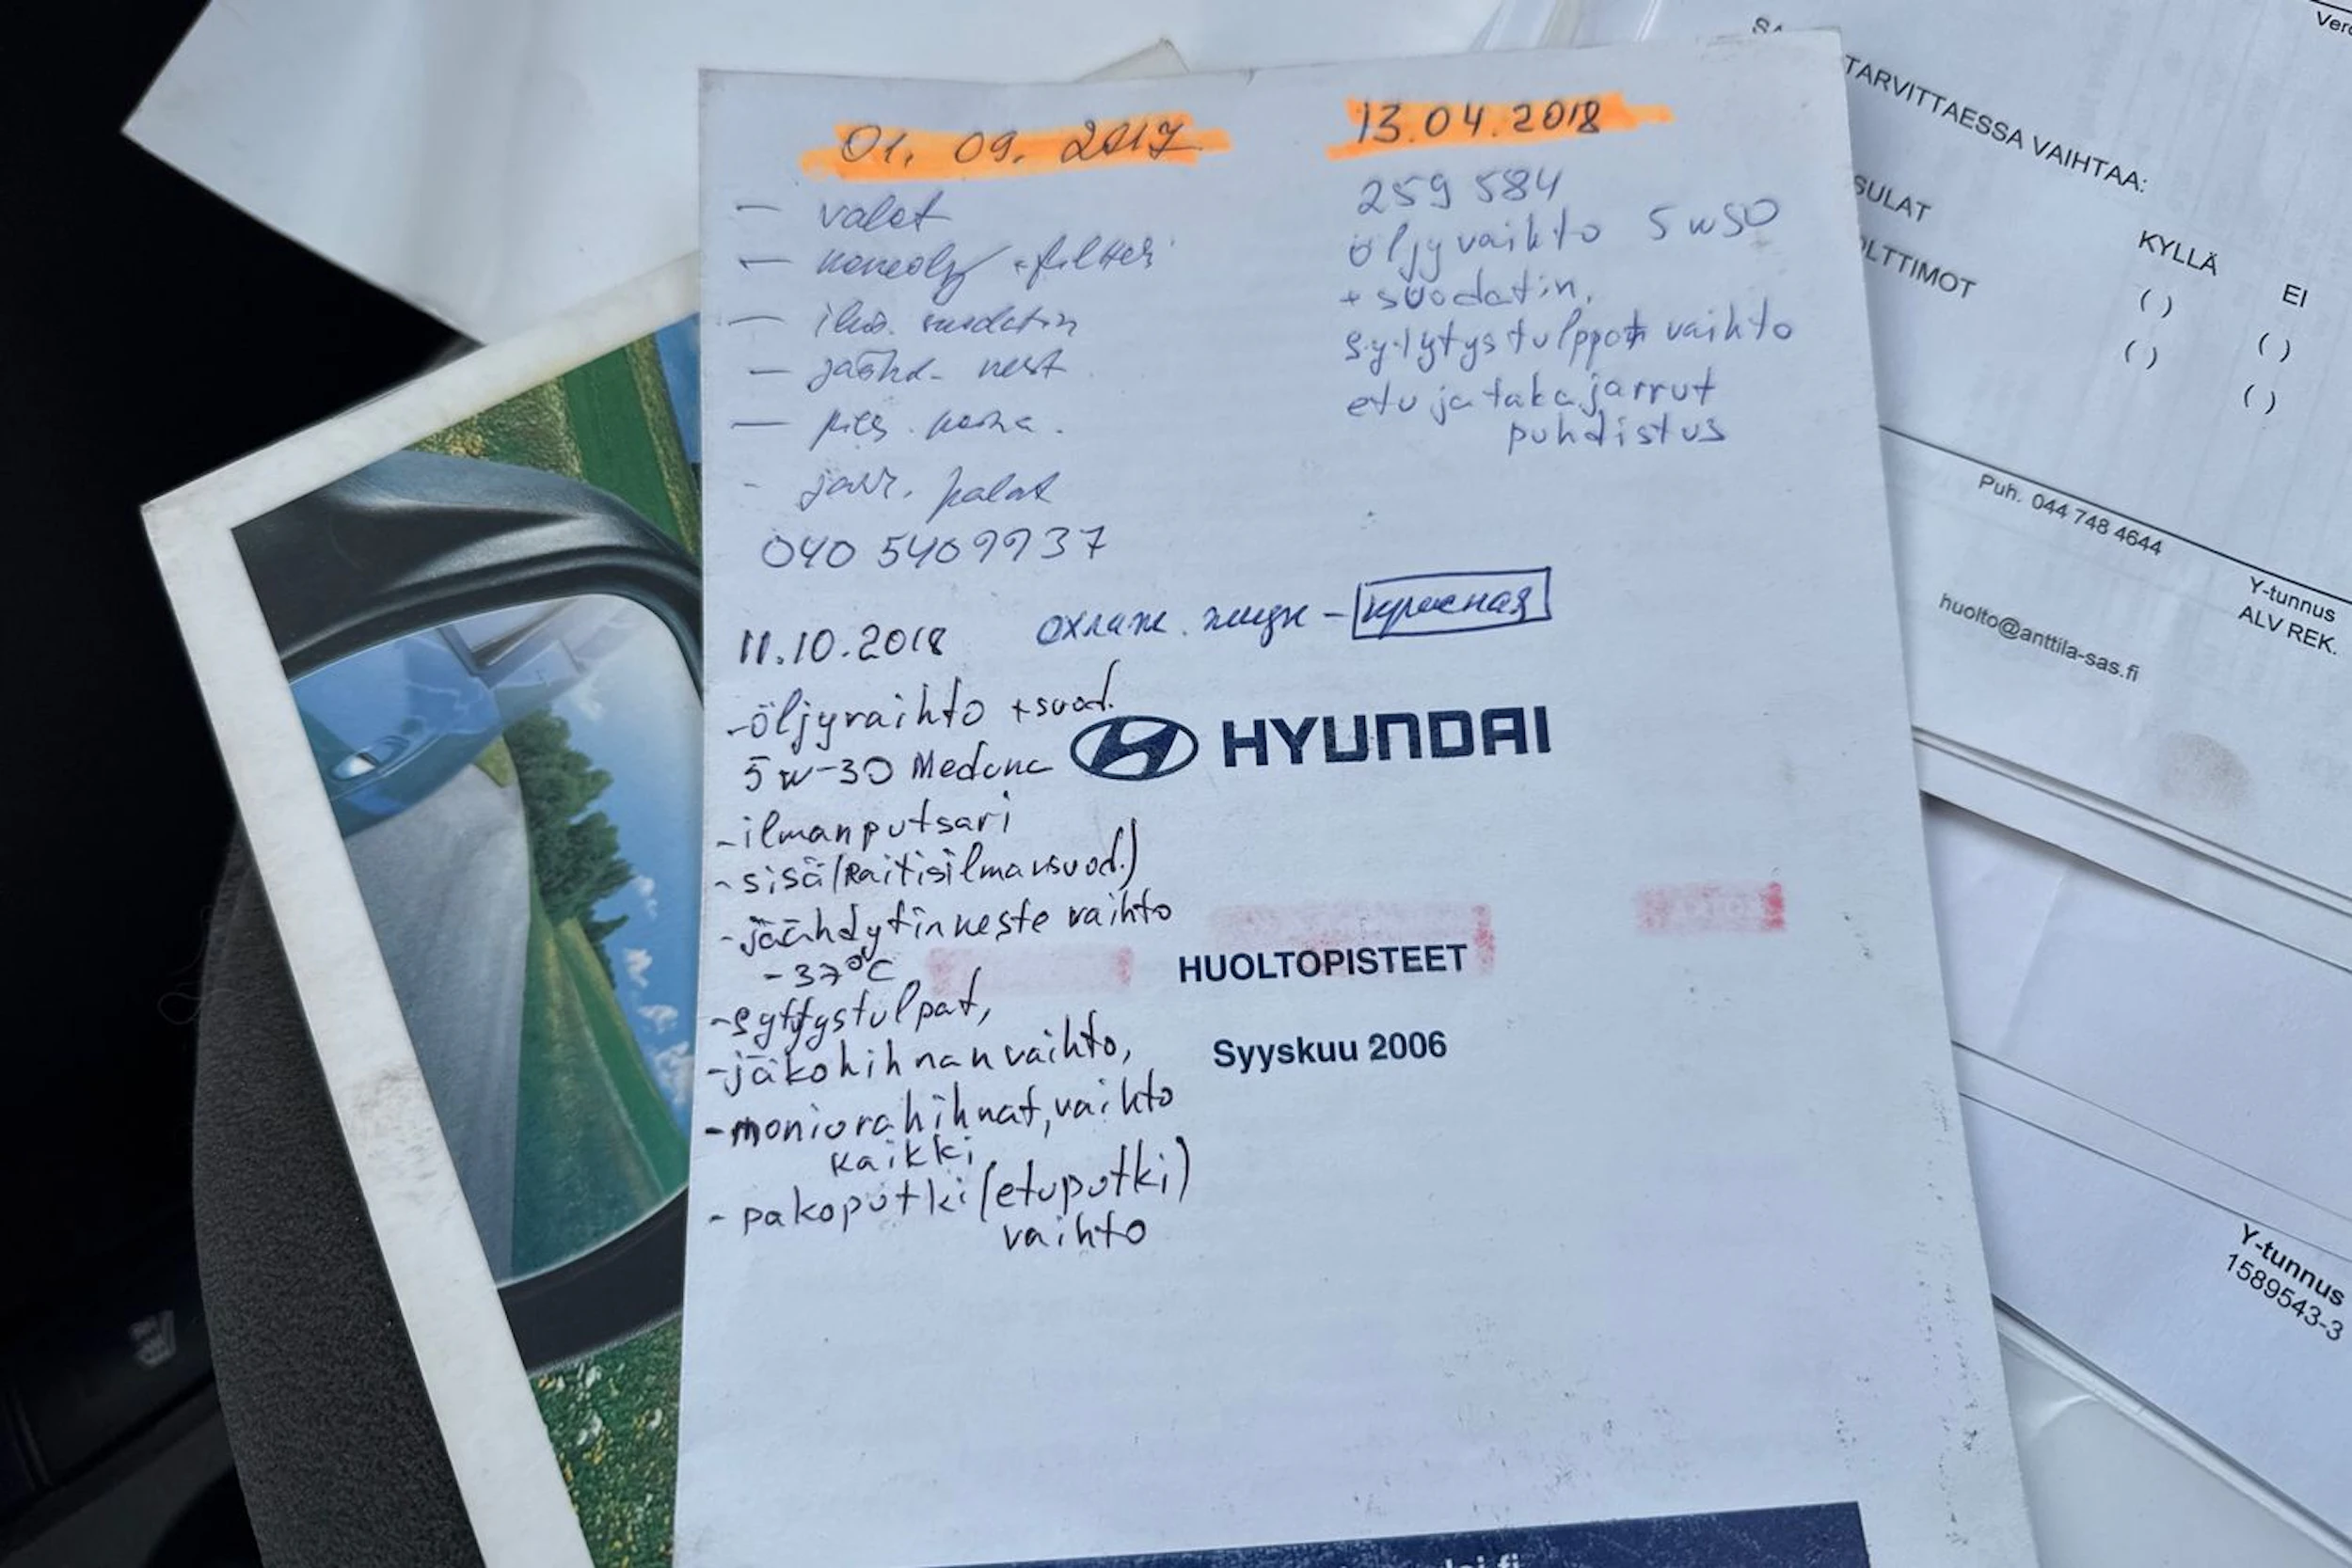 01. 09. 2017
- valot
- koneölj + filtteri
- ilm. suodatin
- jäähd. nest
- jarr. palat
040 5409937
13.04.2018
259 584
öljyvaihto 5w50
+ suodatin,
sytytystulppot vaihto
etu ja taka jarrut
puhdistus
охлаж. жидк - красная
11.10.2018
-öljyvaihto +suod.
5w-30 Medona
-ilmanputsari
-sisä (Raitisilmansuod.)
-jäähdytinneste vaihto
-37°C
-sytytystulpat,
-jakohihnanvaihto,
-moniurahihnat, vaihto
kaikki
-pakoputki (etuputki)
vaihto
HYUNDAI
HUOLTOPISTEET
Syyskuu 2006
TARVITTAESSA VAIHTAA:
KYLLÄ EI
SULAT ( ) ( )
LTTIMOT ( ) ( )
Puh. 044 748 4644
Y-tunnus
ALV REK.
huolto@anttila-sas.fi
Y-tunnus
1589543-3